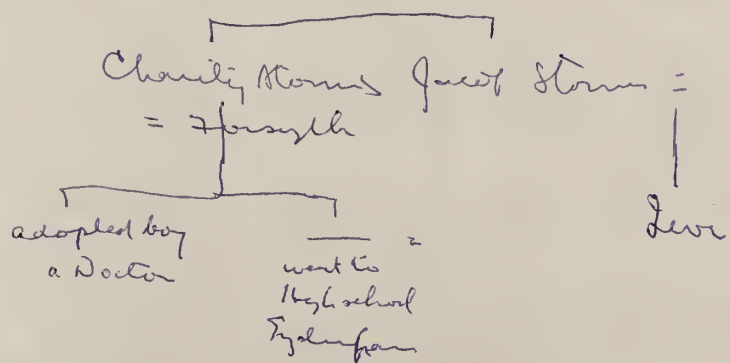 Charity Storms Jacob Storms =
= Forsyth
adopted boy
a Doctor
=
went to
High school
Levi